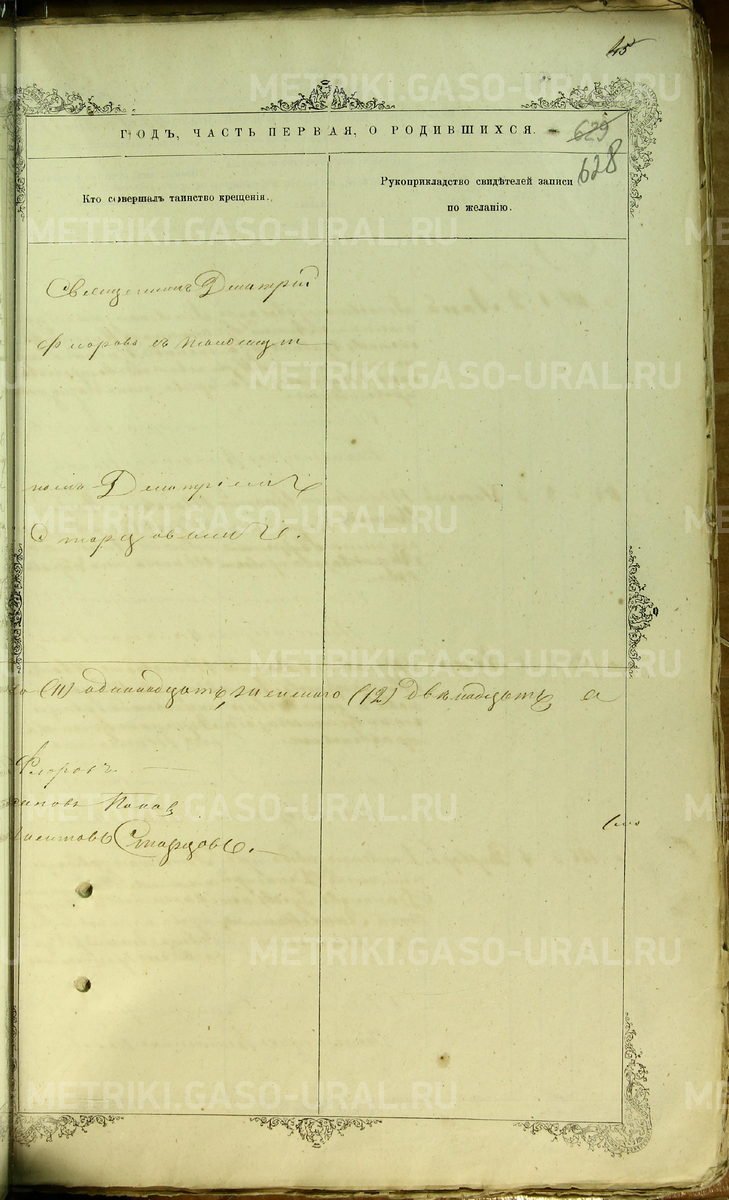 45
ГОДЪ, ЧАСТЬ ПЕРВАЯ, О РОДИВШИХСЯ.
629
628
Кто совершалъ таинство крещенія.
Рукоприкладство свидѣтелей записи
по желанію.
Священникъ Дмитрій
Флоровъ съ
Дмитріемъ
Старцовымъ.
(11) одинадцать, женскаго (12) двѣнадцать а
Флоровъ
Поповъ
Старцовъ.
METRIKI.GASO-URAL.RU